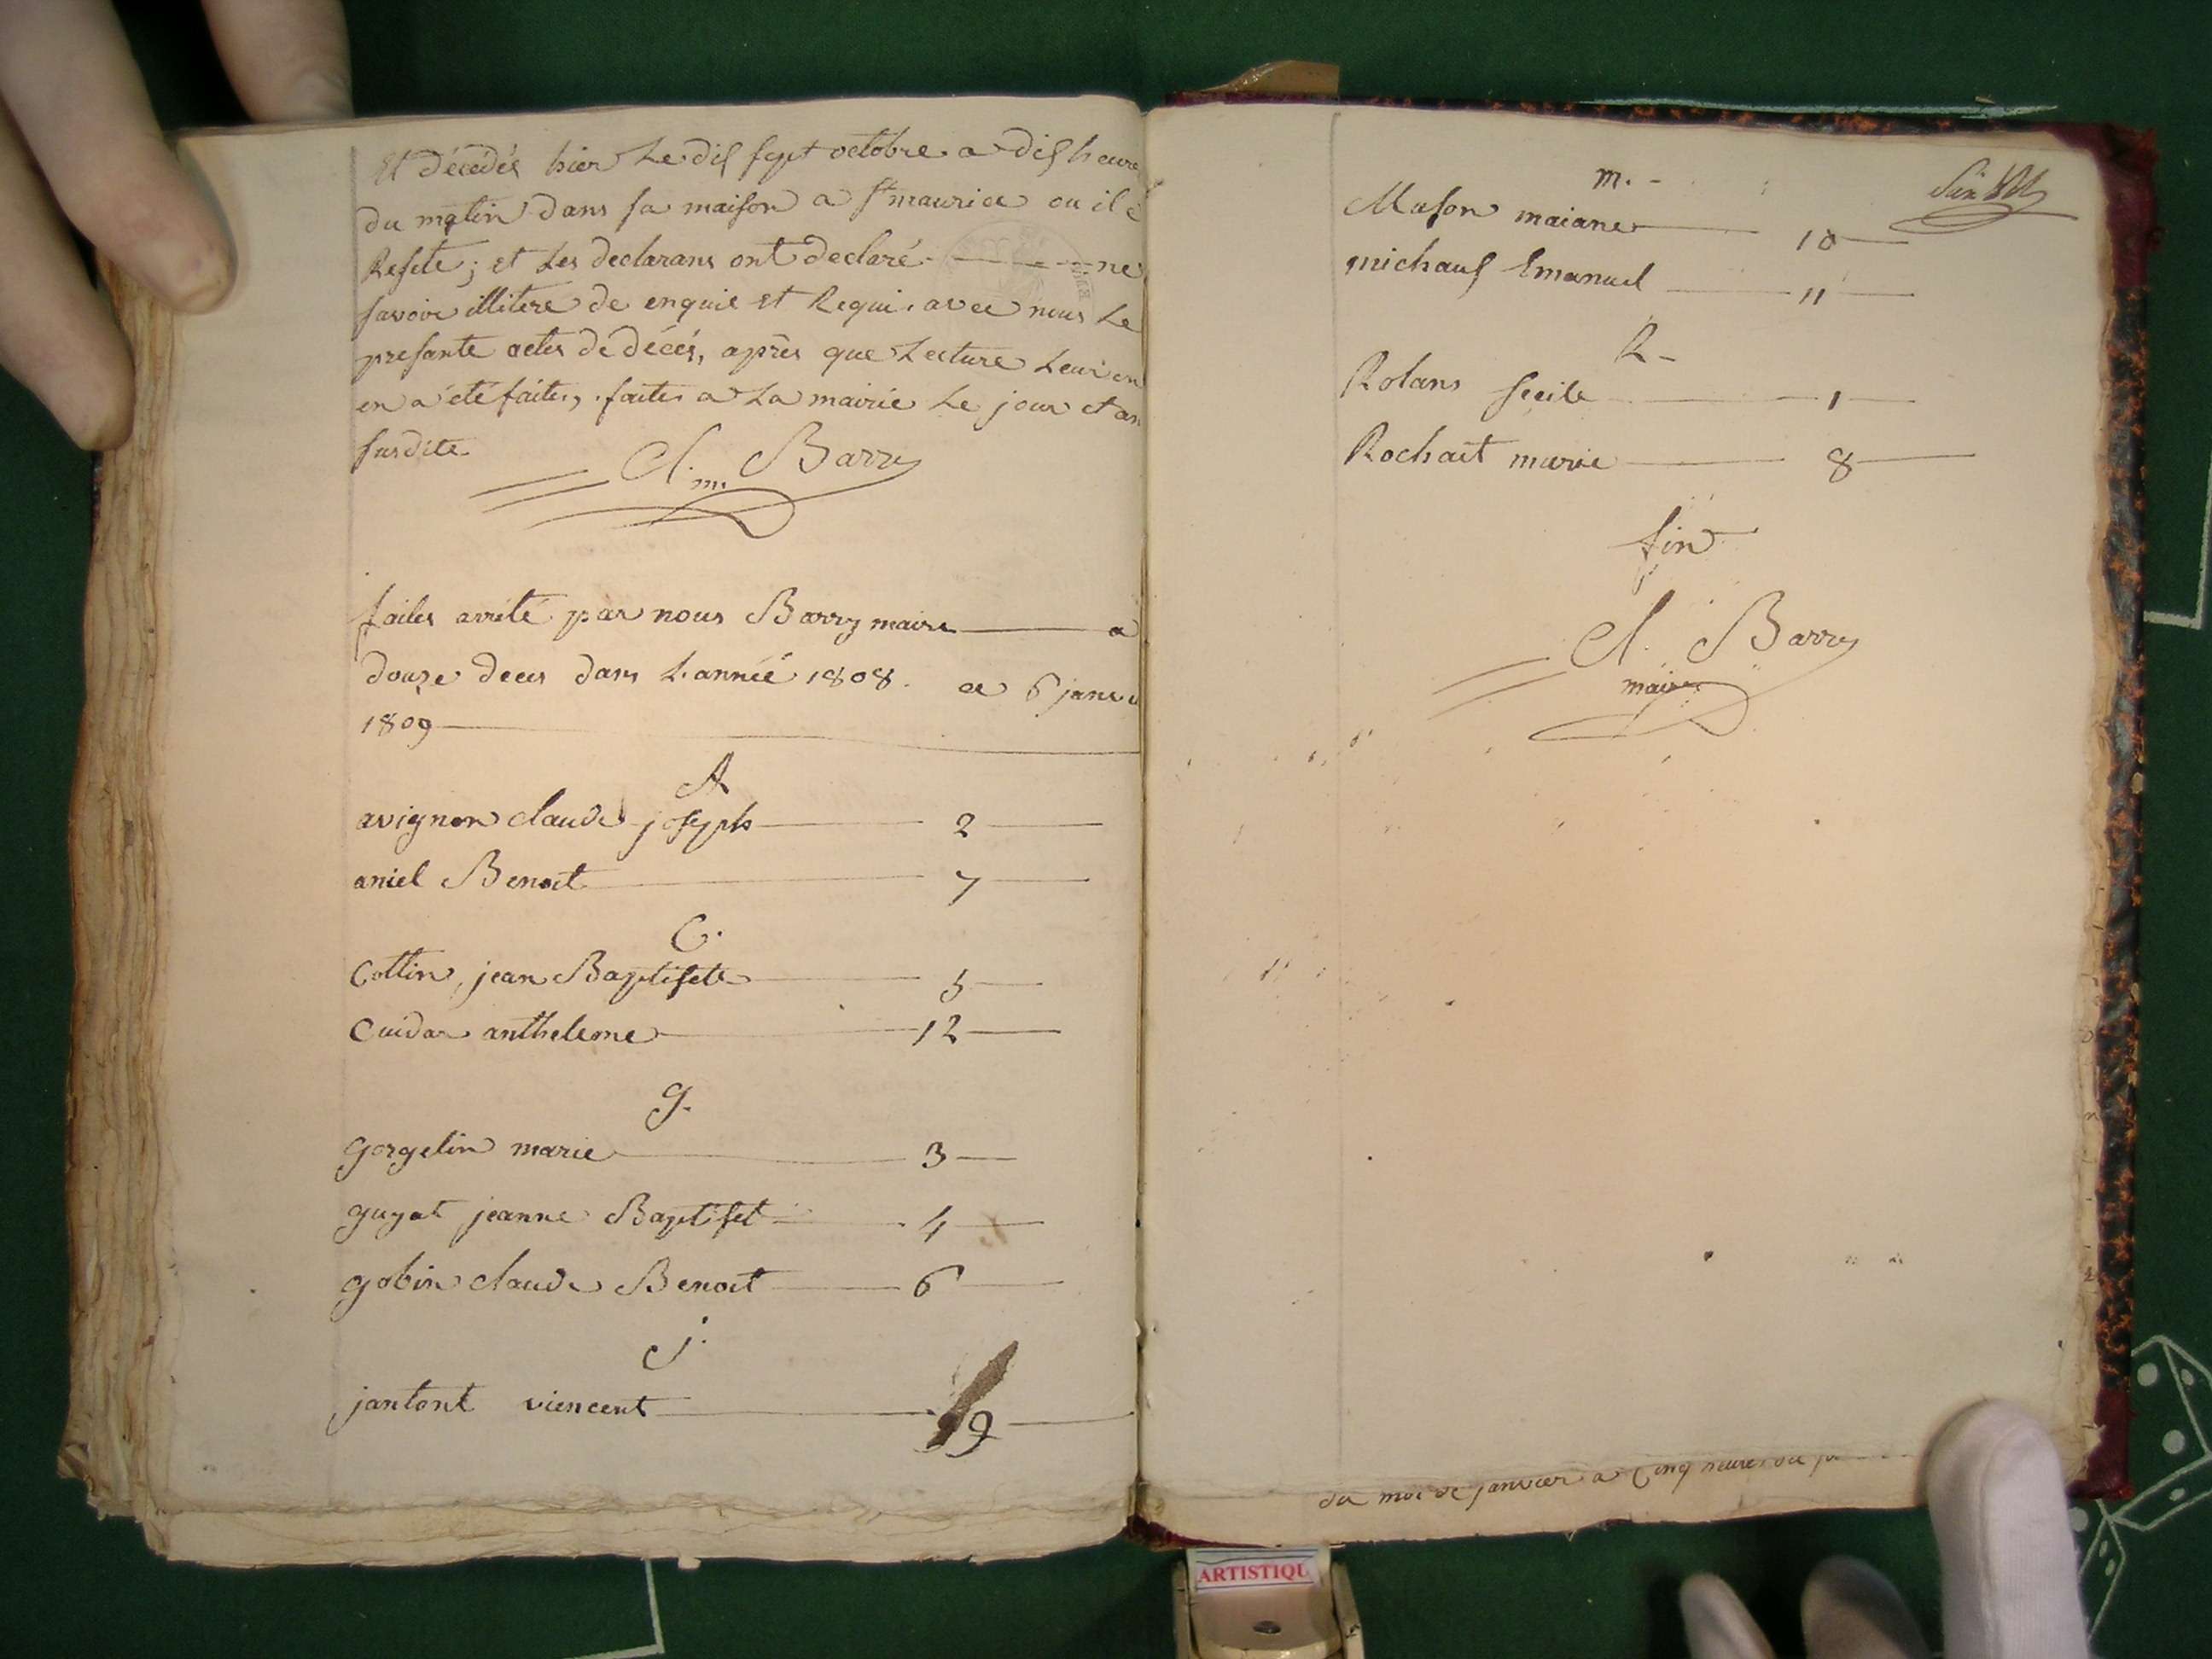 Et décédés hier Le dis sept octobre a dis heure
du matin dans sa maison a St maurice ou il é
Resete ; et Les declarans ont declaré ne
savoir illitere de enquie et Requi. avec nous Le
presante actes de décés, après que Lecture Leur en
en a été faites, faites a La mairie Le jour et an
susdite.
Cl. Barry
m.
faites arrité par nous Barry maire a
douze deces dans L'année 1808. ce 6 janvi
1809
A
avignon claude joseph 2
aniel Benoit 7
C.
Cottin jean Baptisete 5
Cuidar antheleme 12
g.
gorgelin marie 3
guyat jeanne Baptiset 4
gobin claude Benoit 6
j.
jantont viencent 9
m.
Mason maiane 10
michaus Emanuel 11
R
Rolans secile 1
Rochait marie 8
fin
Cl. Barry
maire
du moi de janvier a Cinq heures du
ARTISTIQU